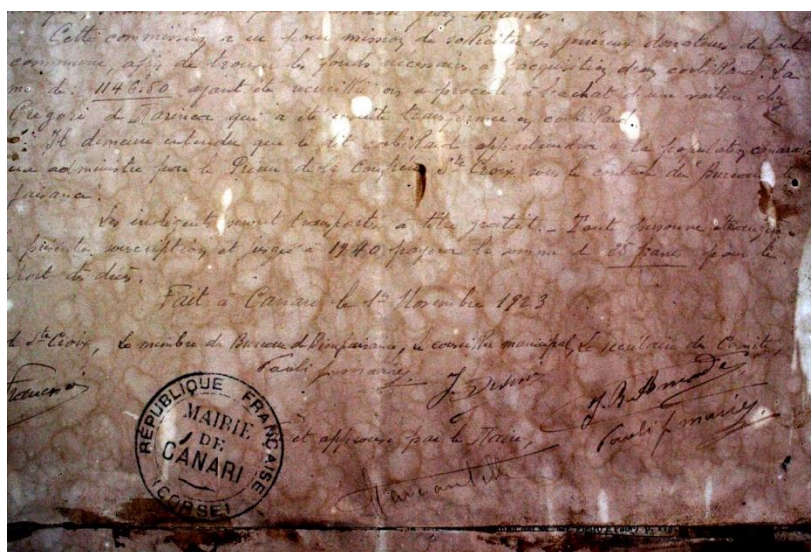 Cette commission a eu pour mission de solliciter les généreux donateurs de toute
commune, afin de trouver les fonds nécessaires à l'acquisition d'un corbillard. La
me de : 1146.50 ayant été recueillie on a procédé à l'achat d'une voiture chez
Grégori de Marinca qui a été ensuite transformée en corbillard.
Il demeure entendu que le dit corbillard appartiendra à la population
administré par le Prieur de la Confrérie Ste Croix sous le contrôle du Bureau de
faisance.
Les indigents seront transportés à titre gratuit. - Toute personne étrangère
présente souscription et jusqu'à 1940 payera la somme de 25 francs pour le
port des dits.
Fait à Canari le 1er Novembre 1923
Ste Croix, Le membre du Bureau de Bienfaisance, le conseiller municipal, Le secrétaire du Comité,
Pauli j. marie
Pauli j. marie
et approuvé par le Maire,
RÉPUBLIQUE FRANÇAISE
MAIRIE
DE
CANARI
(CORSE)